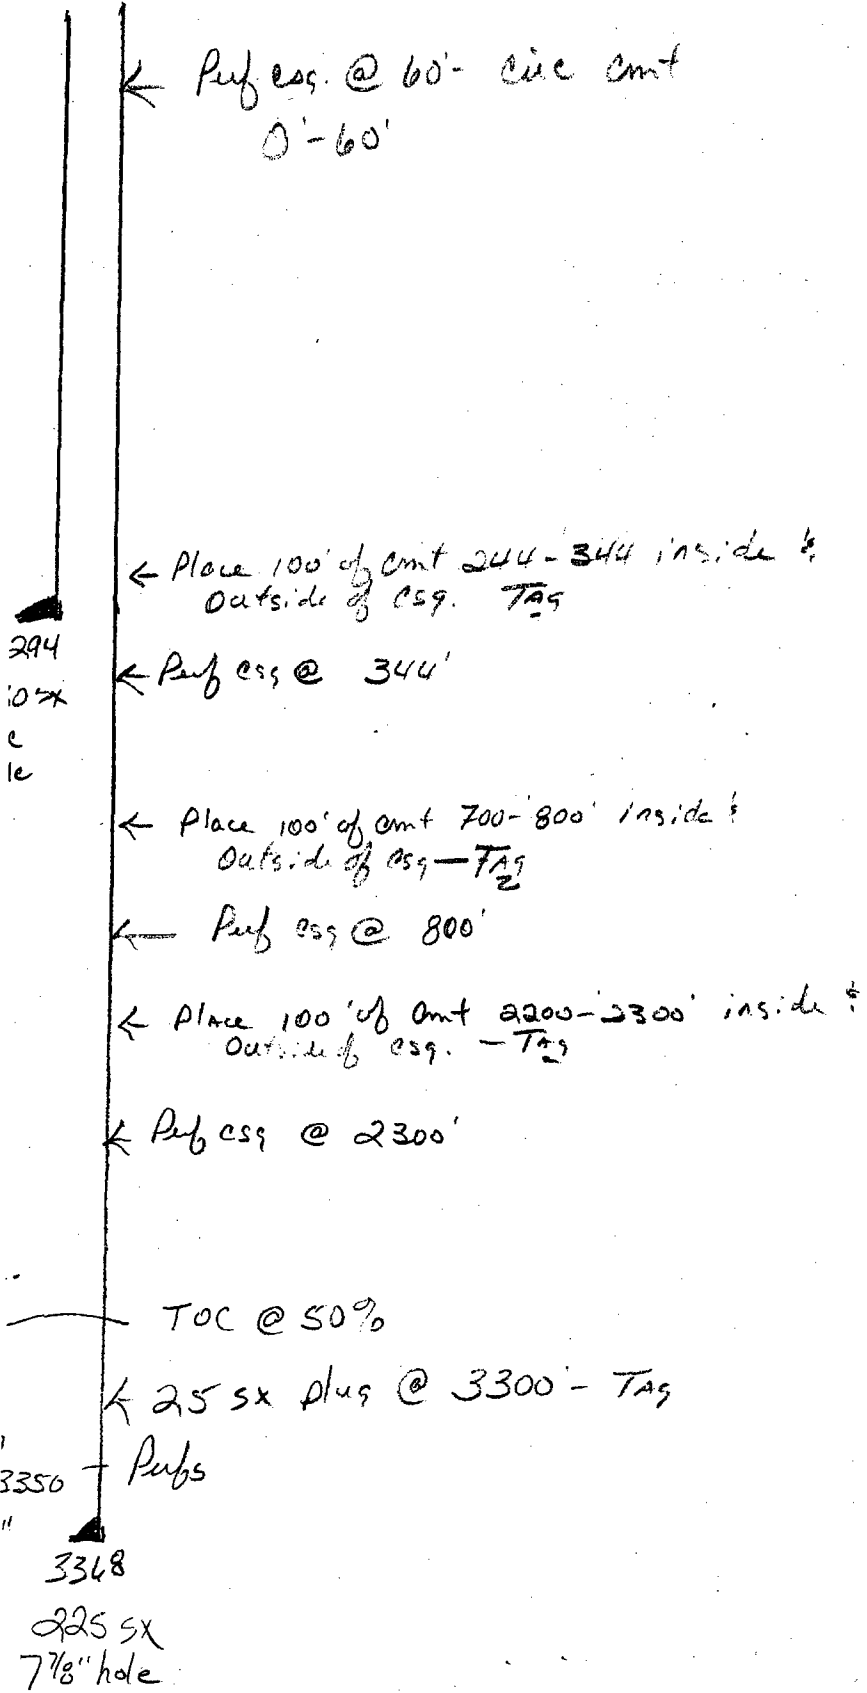 Perf csg. @ 60'- circ cmt
0'-60'
← Place 100' of cmt 244-344 inside &
Outside of csg. TAg
294
sx
← Perf csg @ 344'
c
le
← Place 100' of cmt 700-800' inside &
Outside of csg — TAg
← Perf csg @ 800'
← Place 100' of cmt 2200-2300' inside &
Outside of csg. - TAg
← Perf csg @ 2300'
TOC @ 50%
← 25 sx plug @ 3300'- TAg
3350 - Perfs
"
3368
225 sx
7 7/8" hole